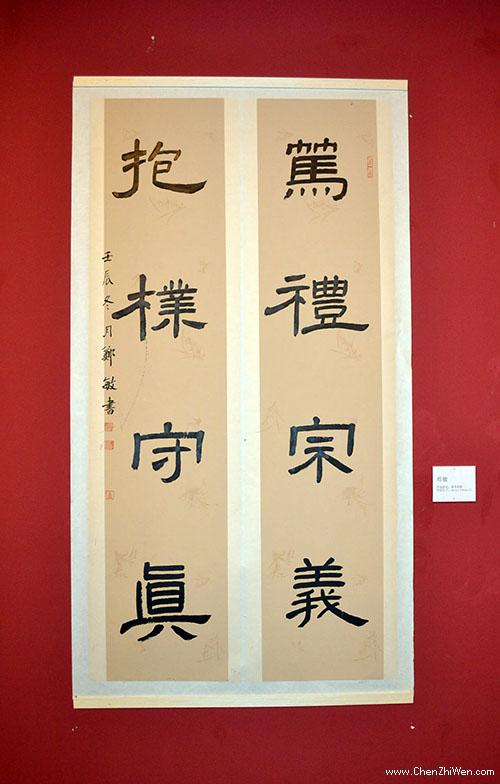 篤禮宗義
抱樸守眞
壬辰冬月鄭敏書
www.ChenZhiWen.com